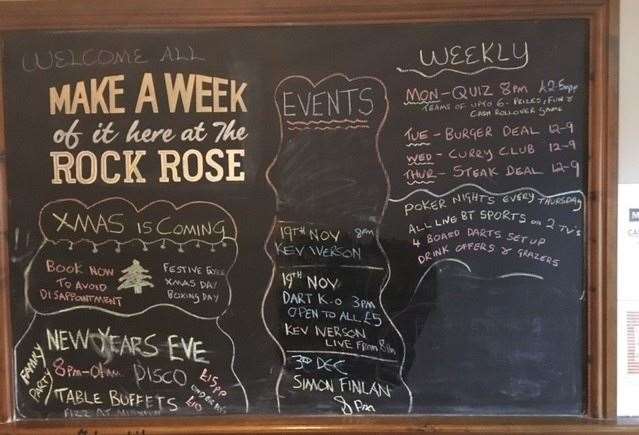 WELCOME ALL
MAKE A WEEK
of it here at The
ROCK ROSE
XMAS IS COMING
BOOK NOW
TO AVOID
DISAPPOINTMENT
FESTIVE
XMAS DAY
BOXING DAY
NEW YEARS EVE
FAMILY
PARTY
8pm-01am DISCO £15pp
TABLE BUFFETS £10
FIZZ AT MIDNIGHT
EVENTS
19TH NOV 8pm
KEV IVERSON
19TH NOV
DART K.O 3PM
OPEN TO ALL £5
KEV IVERSON
LIVE FROM 8pm
3RD DEC
SIMON FINLAN
8pm
WEEKLY
MON - QUIZ 8pm £2.50pp
TEAMS OF UPTO 6 - PRIZES, FUN &
CASH ROLLOVER GAME
TUE - BURGER DEAL 12-9
WED - CURRY CLUB 12-9
THUR - STEAK DEAL 12-9
POKER NIGHTS EVERY THURSDAY
ALL LIVE BT SPORTS on 2 TV's
4 BOARD DARTS SETUP
DRINK OFFERS & GRAZERS